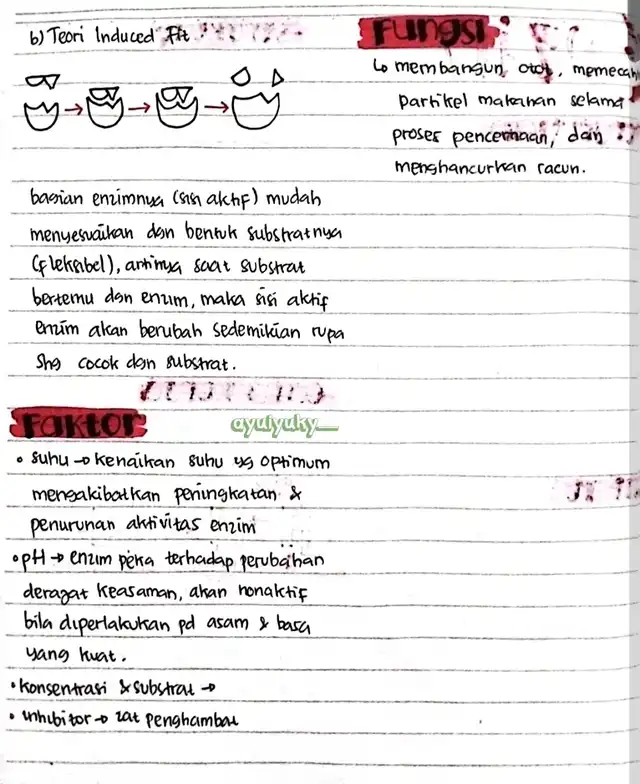 b) Teori Induced Fit
bagian enzimnya (sisi aktif) mudah
menyesuaikan dgn bentuk substratnya
(fleksibel), artinya saat substrat
bertemu dgn enzim, maka sisi aktif
enzim akan berubah sedemikian rupa
shg cocok dgn substrat.
Fungsi
↳ membangun otot, memecah
partikel makanan selama
proses pencernaan, dan
menghancurkan racun.
Faktor
ayulyuky__
• suhu → kenaikan suhu yg optimum
mengakibatkan peningkatan &
penurunan aktivitas enzim
• pH → enzim peka terhadap perubahan
derajat keasaman, akan nonaktif
bila diperlakukan pd asam & basa
yang kuat.
• konsentrasi & substrat →
• inhibitor → zat penghambat